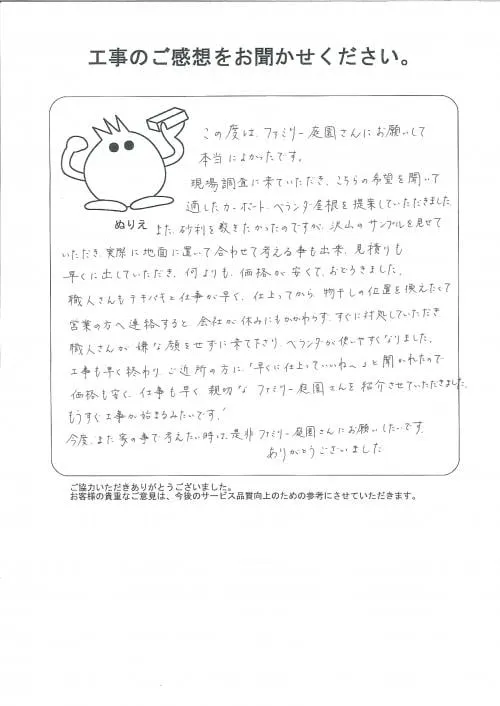 工事のご感想をお聞かせください。
この度は、ファミリー庭園さんにお願いして
本当によかったです。
現場調査に来ていただき、こちらの希望を聞いて
適したカーポート、ベランダ屋根を提案していただきました。
ぬりえ
また、砂利を敷きたかったのですが、沢山のサンプルを見せて
いただき、実際に地面に置いて合わせて考える事も出来、見積りも
早くに出していただき、何よりも、価格が安くて、おどろきました。
職人さんもテキパキと仕事が早く、仕上ってから、物干しの位置を換えたくて
営業の方へ連絡すると、会社が休みにもかかわらず、すぐに対処していただき
職人さんが嫌な顔をせずに来て下さり、ベランダが使いやすくなりました。
工事も早く終わり、ご近所の方に、「早くに仕上っていいね〜」と聞かれたので
価格も安く、仕事も早く、親切な ファミリー庭園さんを紹介させていただきました。
もうすぐ工事が始まるみたいです!
今度、また家の事で考えたい時は、是非ファミリー庭園さんにお願いしたいです。
ありがとうございました
ご協力いただきありがとうございました。
お客様の貴重なご意見は、今後のサービス品質向上のための参考にさせていただきます。